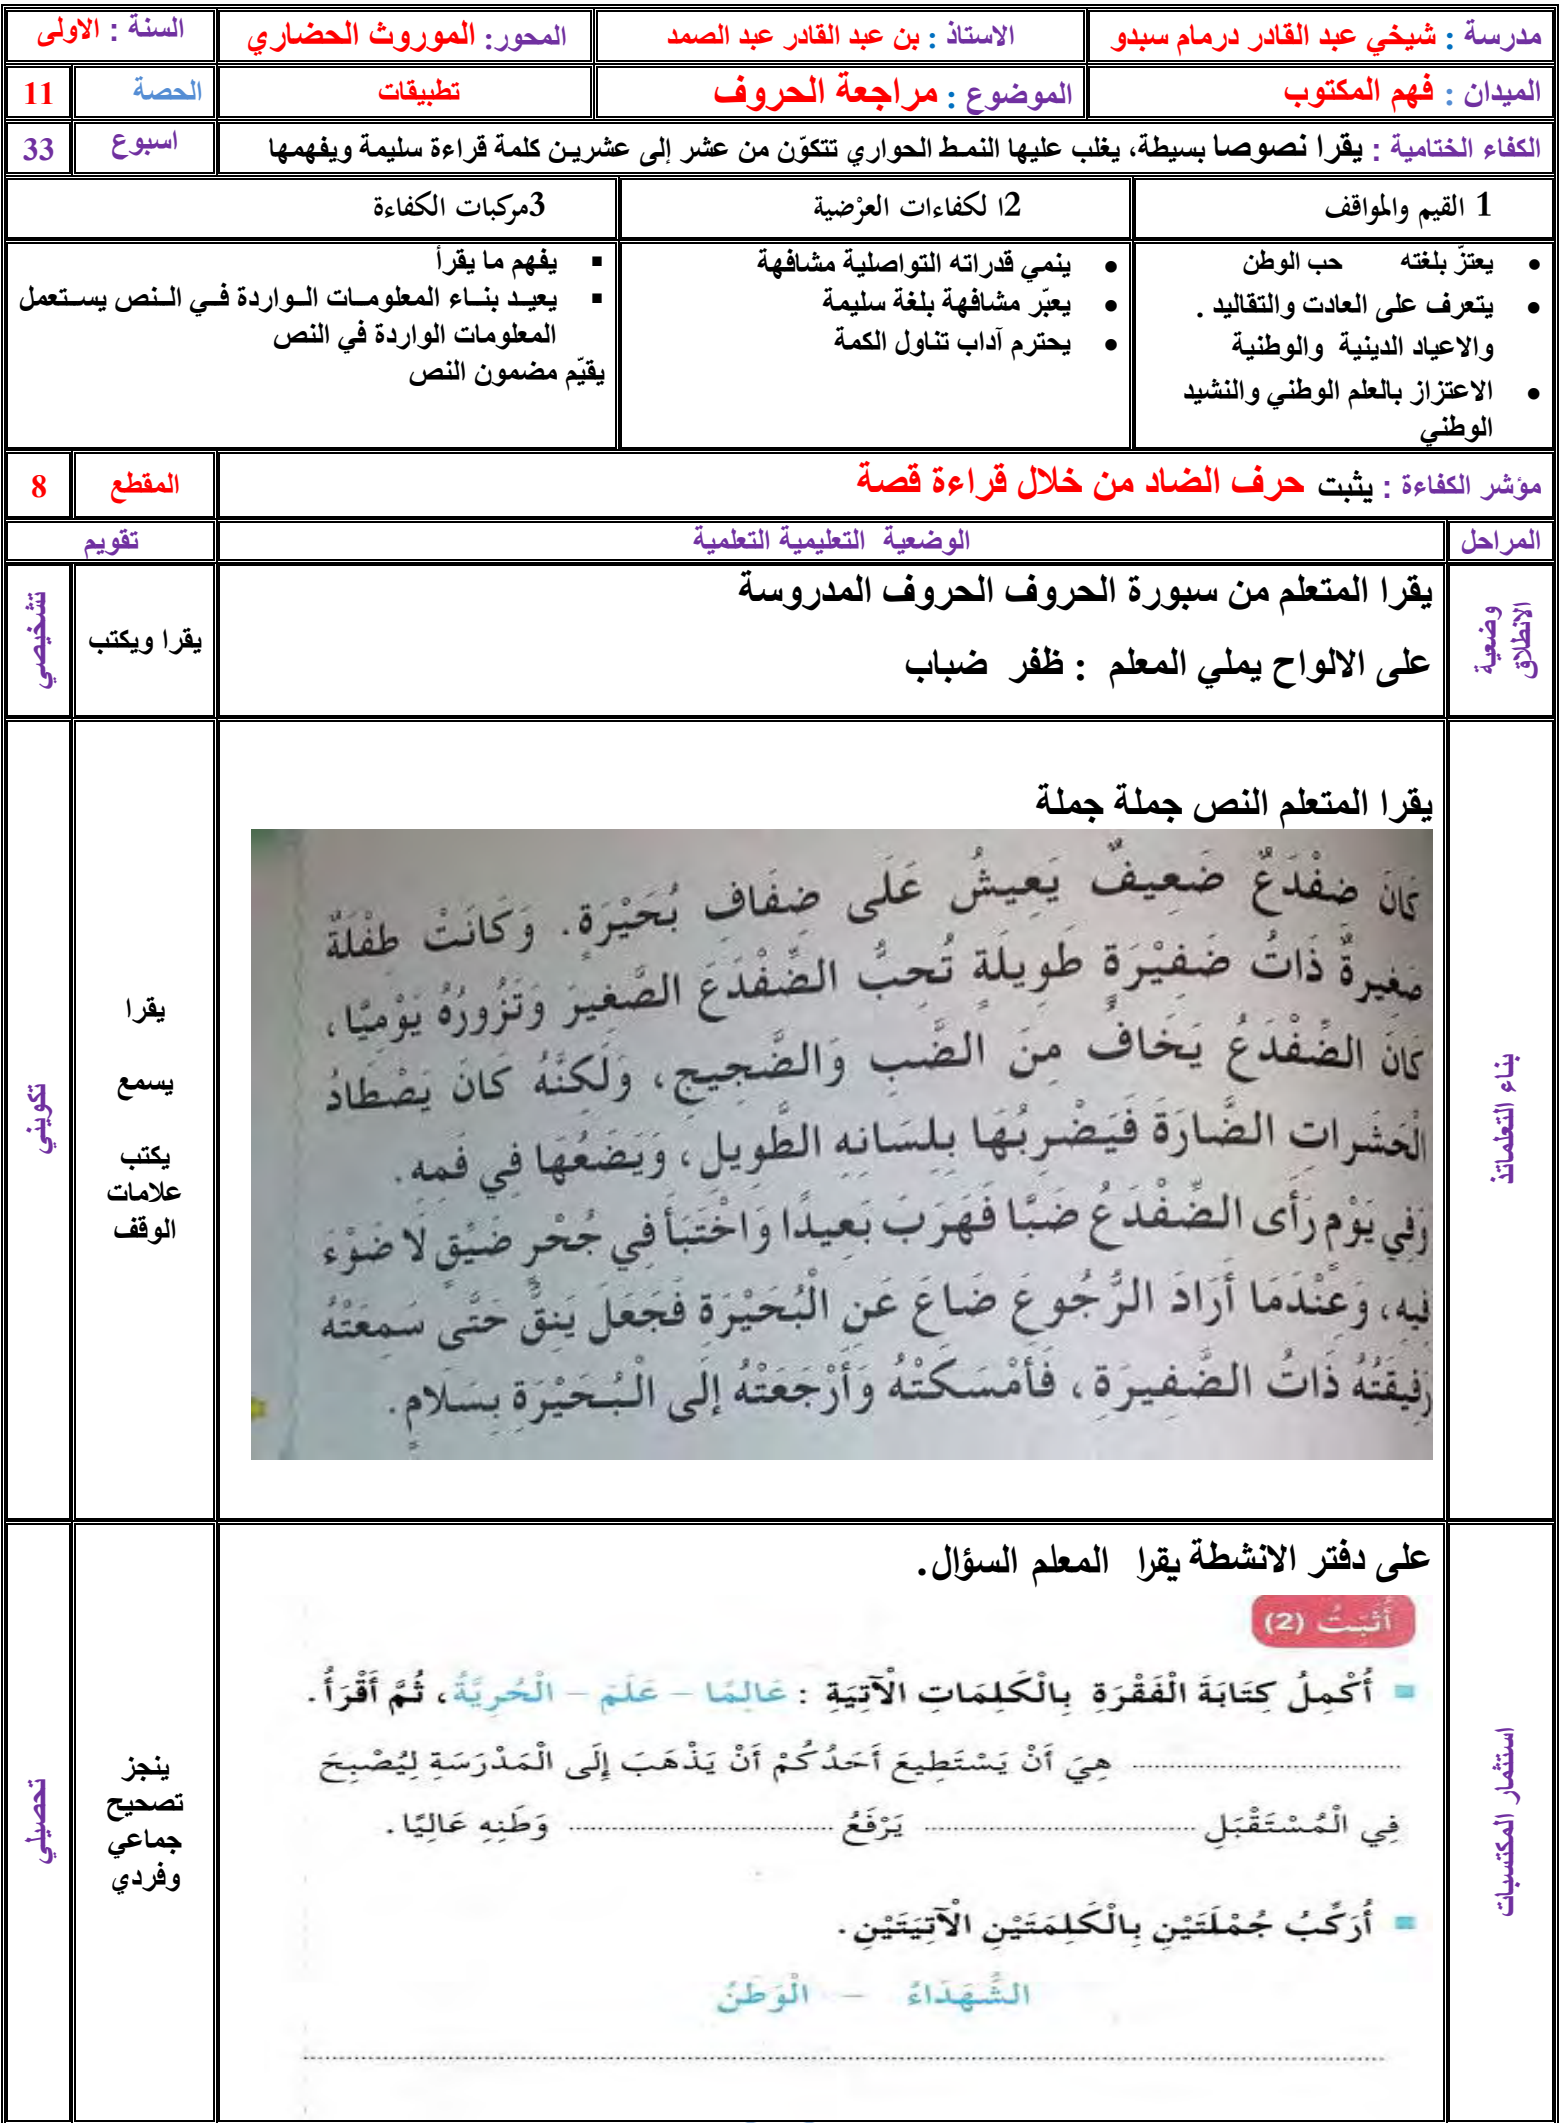 مدرسة : شيخي عبد القادر درمام سبدو
الاستاذ : بن عبد القادر عبد الصمد
المحور: الموروث الحضاري
السنة : الاولى
الميدان : فهم المكتوب
الموضوع : مراجعة الحروف
تطبيقات
الحصة
11
الكفاء الختامية : يقرا نصوصا بسيطة، يغلب عليها النمط الحواري تتكوّن من عشر إلى عشرين كلمة قراءة سليمة ويفهمها
اسبوع
33
1 القيم والمواقف
2ا لكفاءات العرْضية
3مركبات الكفاءة
• يعتزّ بلغته حب الوطن
• يتعرف على العادت والتقاليد .
والاعياد الدينية والوطنية
• الاعتزاز بالعلم الوطني والنشيد
الوطني
• ينمي قدراته التواصلية مشافهة
• يعبّر مشافهة بلغة سليمة
• يحترم آداب تناول الكمة
▪ يفهم ما يقرأ
▪ يعيد بناء المعلومات الواردة في النص يستعمل
المعلومات الواردة في النص
يقيّم مضمون النص
مؤشر الكفاءة : يثبت حرف الضاد من خلال قراءة قصة
المقطع
8
المراحل
الوضعية التعليمية التعلمية
تقويم
وضعية
الانطلاق
يقرا المتعلم من سبورة الحروف الحروف المدروسة
على الالواح يملي المعلم : ظفر ضباب
يقرا ويكتب
تشخيصي
بناء التعلماتذ
يقرا المتعلم النص جملة جملة
كَانَ ضِفْدَعٌ ضَعِيفٌ يَعِيشُ عَلَى ضِفَافِ بُحَيْرَةٍ. وَكَانَتْ طِفْلَةٌ
صَغِيرَةٌ ذَاتُ ضَفِيْرَةٍ طَوِيلَةٍ تُحِبُّ الضِّفْدَعَ الصَّغِيرَ وَتَزُورُهُ يَوْمِيًّا،
كَانَ الضِّفْدَعُ يَخَافُ مِنَ الضَّبِ وَالضَّجِيجِ، وَلَكِنَّهُ كَانَ يَصْطَادُ
الْحَشَرَاتِ الضَّارَةَ فَيَضْرِبُهَا بِلِسَانِهِ الطَّوِيلِ، وَيَضَعُهَا فِي فَمِهِ.
وَفِي يَوْمٍ رَأَى الضِّفْدَعُ ضَبًّا فَهَرَبَ بَعِيدًا وَاخْتَبَأَ فِي جُحْرٍ ضَيِّقٍ لَا ضَوْءَ
فِيهِ، وَعِنْدَمَا أَرَادَ الرُّجُوعَ ضَاعَ عَنِ الْبُحَيْرَةِ فَجَعَلَ يَنِقُّ حَتَّى سَمِعَتْهُ
رَفِيقَتُهُ ذَاتُ الضَّفِيرَةِ، فَأَمْسَكَتْهُ وَأَرْجَعَتْهُ إِلَى الْبُحَيْرَةِ بِسَلَامٍ.
يقرا
يسمع
يكتب
علامات
الوقف
تكويني
استثمار المكتسبات
على دفتر الانشطة يقرا المعلم السؤال.
أُثَبِّتُ (2)
أُكْمِلُ كِتَابَةَ الْفَقْرَةِ بِالْكَلِمَاتِ الْآتِيَةِ : عَالِمًا – عَلَمَ – الْحُرِيَّةُ، ثُمَّ أَقْرَأُ.
.................... هِيَ أَنْ يَسْتَطِيعَ أَحَدُكُمْ أَنْ يَذْهَبَ إِلَى الْمَدْرَسَةِ لِيُصْبِحَ
فِي الْمُسْتَقْبَلِ .................... يَرْفَعُ .................... وَطَنِهِ عَالِيًا.
أُرَكِّبُ جُمْلَتَيْنِ بِالْكَلِمَتَيْنِ الْآتِيَتَيْنِ.
الشُّهَدَاءُ – الْوَطَنُ
ينجز
تصحيح
جماعي
وفردي
تحصيلي